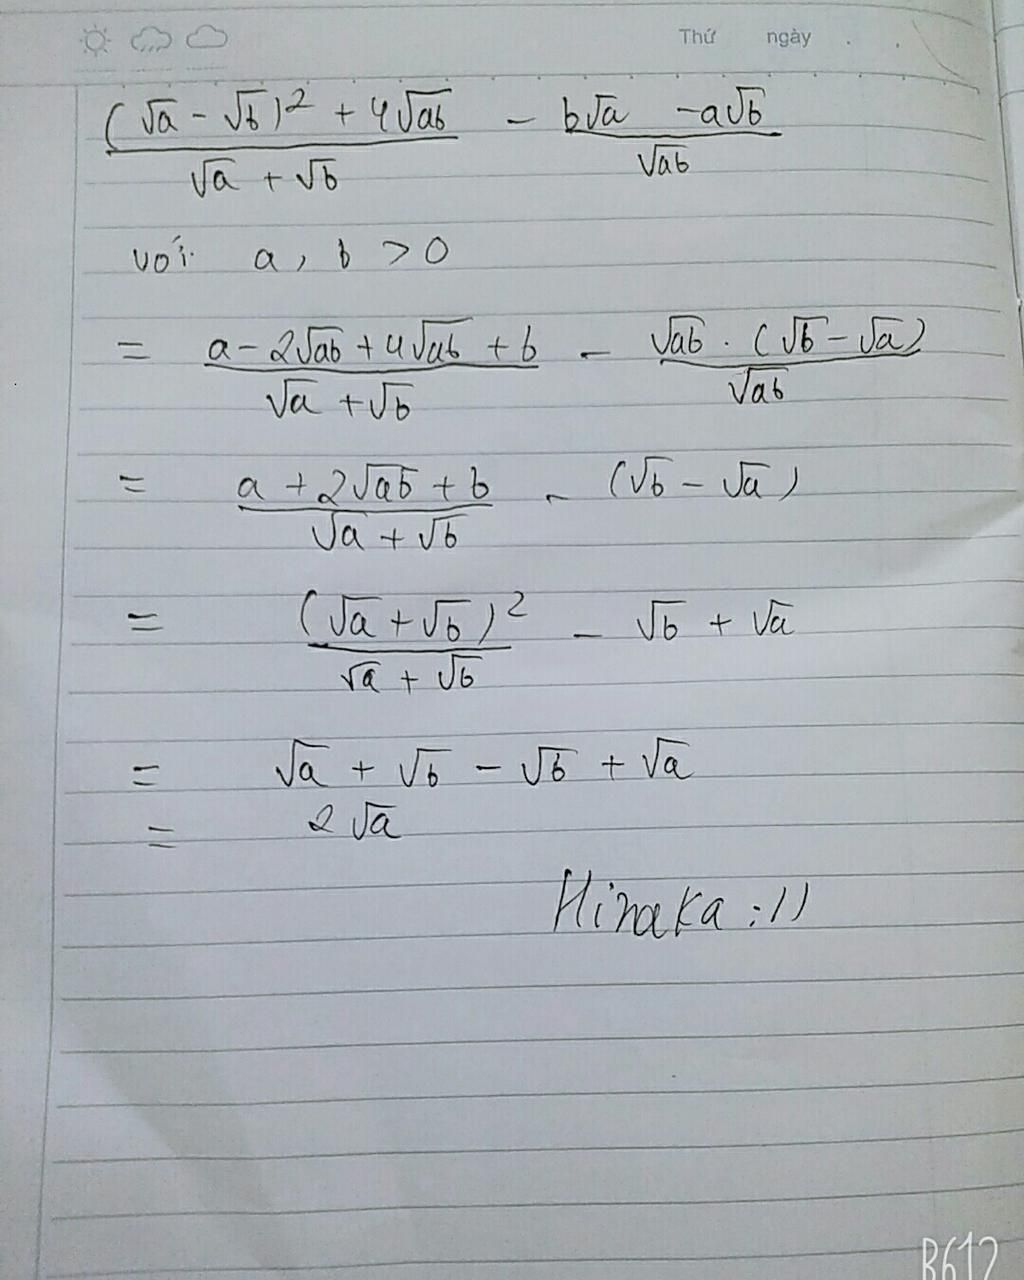 Thứ ngày . .
(√a - √b)² + 4√ab / √a + √b - b√a - a√b / √ab
với a, b > 0
= a - 2√ab + 4√ab + b / √a + √b - √ab . (√b - √a) / √ab
= a + 2√ab + b / √a + √b - (√b - √a)
= (√a + √b)² / √a + √b - √b + √a
= √a + √b - √b + √a
= 2√a
Hinaka :))
B612